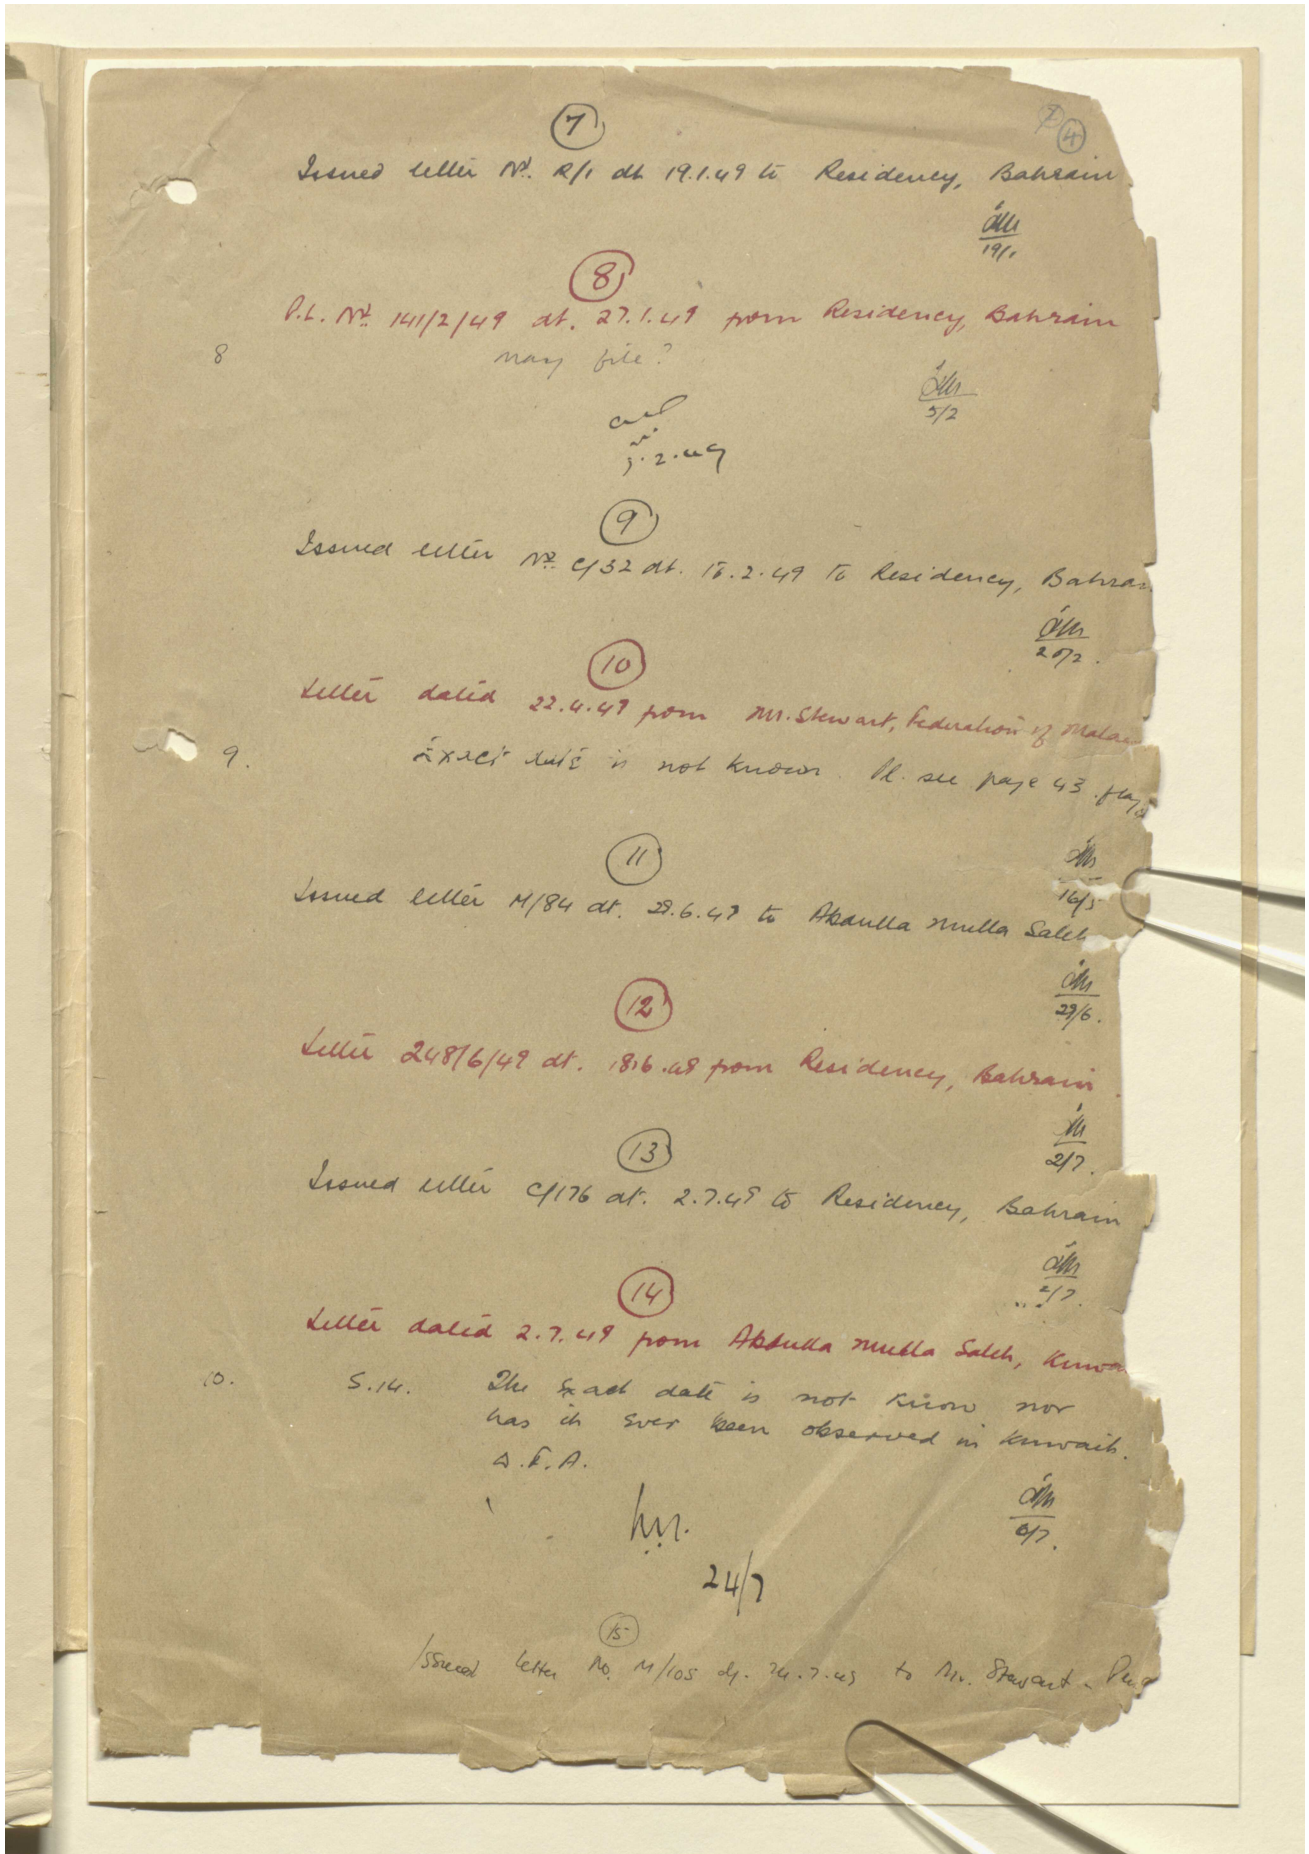 7
4
Issued letter No. R/1 dt 19.1.49 to Residency, Bahrain
19/1
8
P.L. No. 141/2/49 dt. 27.1.49 from Residency, Bahrain
8 may file?
5/2
5.2.49
9
Issued letter No. C/32 dt. 2.49 to Residency, Bahrain
20/2.
10
Letter dated 22.4.49 from Mr. Stewart, Federation of Mala
9. Exact date is not known. Pl. see page 43
16/5
11
Issued letter M/84 dt. 29.6.49 to Abdulla Mulla Saleh
29/6.
12
Letter 248/6/49 dt. 18.6.49 from Residency, Bahrain
2/7.
13
Issued letter C/176 dt. 2.7.49 to Residency, Bahrain
2/7.
14
Letter dated 2.7.49 from Abdulla Mulla Saleh, Kuwa
10. S.14. The exact date is not know nor
has it ever been observed in Kuwait.
D.F.A.
6/7.
24/7
15
Issued letter No. M/105 d/. 24.7.49 to Mr. Stewart -